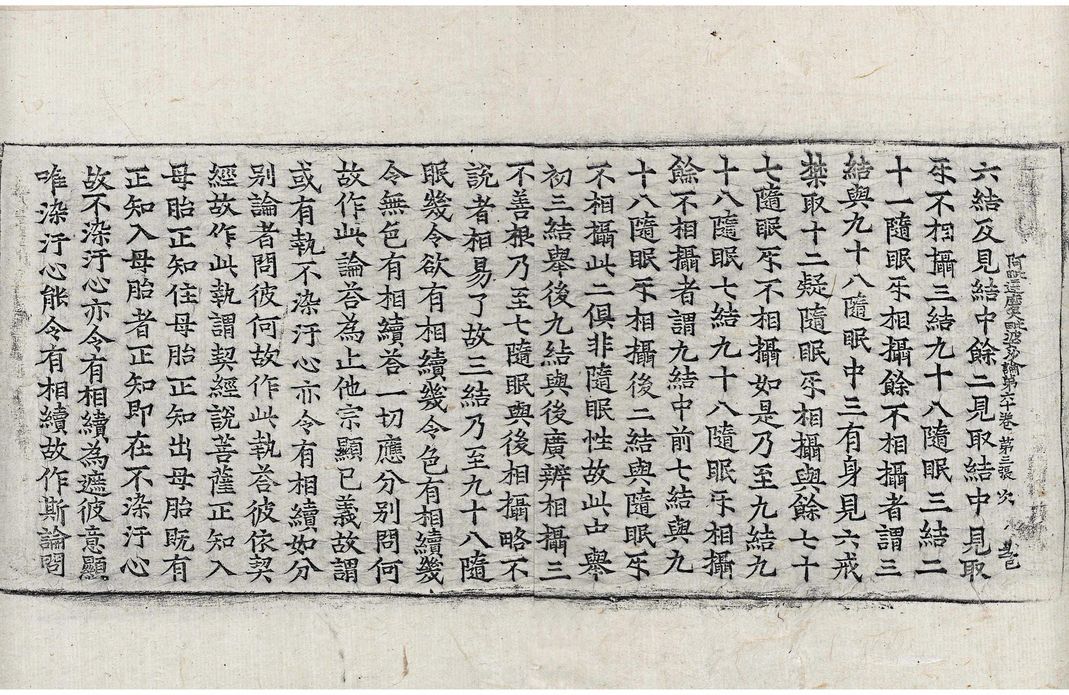 阿毗達磨大毗婆沙論第六十卷 第三張 次
六結及見結中餘二見取結中見取
㸦不相攝三結九十八隨眠三結二
十一隨眠㸦相攝餘不相攝者謂三
結與九十八隨眠中三有身見六戒
禁取十二疑隨眠㸦相攝與餘七十
七隨眠㸦不相攝如是乃至九結九
十八隨眠七結九十八隨眠㸦相攝
餘不相攝者謂九結中前七結與九
十八隨眠㸦相攝後二結與隨眠㸦
不相攝此二俱非隨眠性故此中舉
初三結舉後九結與後廣辨相攝三
不善根乃至七隨眠與後相攝略不
說者相易了故三結乃至九十八隨
眠幾令欲有相續幾令色有相續幾
令無色有相續荅一切應分別問何
故作此論荅為止他宗顯已義故謂
或有執不染汙心亦令有相續如分
別論者問彼何故作此執荅彼依契
經故作此執謂契經說菩薩正知入
母胎正知住母胎正知出母胎旣有
正知入母胎者正知即在不染汙心
故不染汙心亦令有相續為遮彼意顯
唯染汙心能令有相續故作斯論問